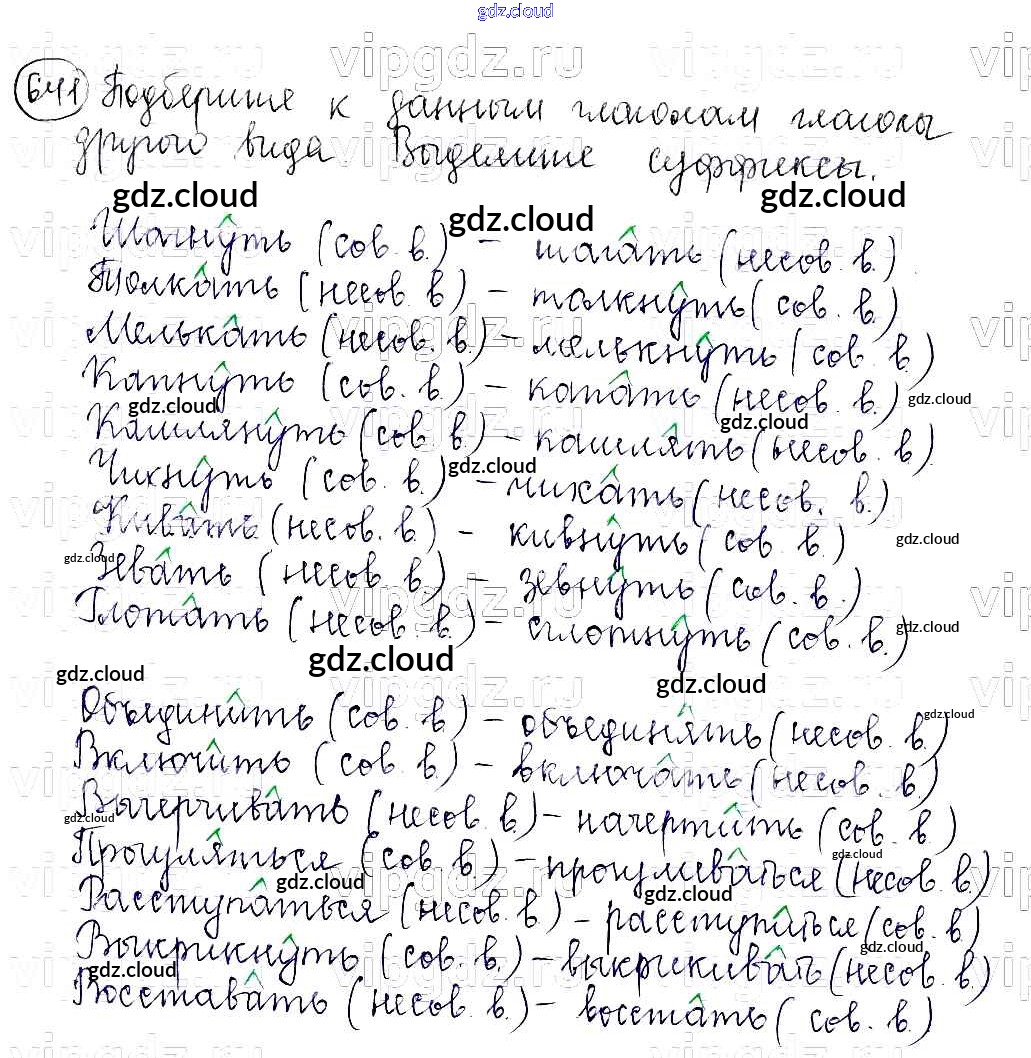 vipgdz.ru
641 Подберите к данным глаголам глаголы
другого вида. Выделите суффиксы.
gdz.cloud gdz.cloud gdz.cloud
Шагнуть (сов. в.) – шагать (несов. в.)
Толкать (несов. в.) – толкнуть (сов. в.)
Мелькать (несов. в.) – мелькнуть (сов. в.)
Капнуть (сов. в.) – капать (несов. в.)
gdz.cloud gdz.cloud gdz.cloud
Кашлянуть (сов. в.) – кашлять (несов. в.)
Чихнуть (сов. в.) – чихать (несов. в.)
gdz.cloud
Кивать (несов. в.) – кивнуть (сов. в.)
gdz.cloud gdz.cloud
Зевать (несов. в.) – зевнуть (сов. в.)
Глотать (несов. в.) – сглотнуть (сов. в.)
gdz.cloud gdz.cloud gdz.cloud gdz.cloud
Объединить (сов. в.) – объединять (несов. в.)
gdz.cloud
Включить (сов. в.) – включать (несов. в.)
Вычерчивать (несов. в.) – начертить (сов. в.)
gdz.cloud
Прогуляться (сов. в.) – прогуливаться (несов. в.)
gdz.cloud gdz.cloud gdz.cloud
Расступаться (несов. в.) – расступиться (сов. в.)
Выкрикнуть (сов. в.) – выкрикивать (несов. в.)
gdz.cloud gdz.cloud
Восставать (несов. в.) – восстать (сов. в.)